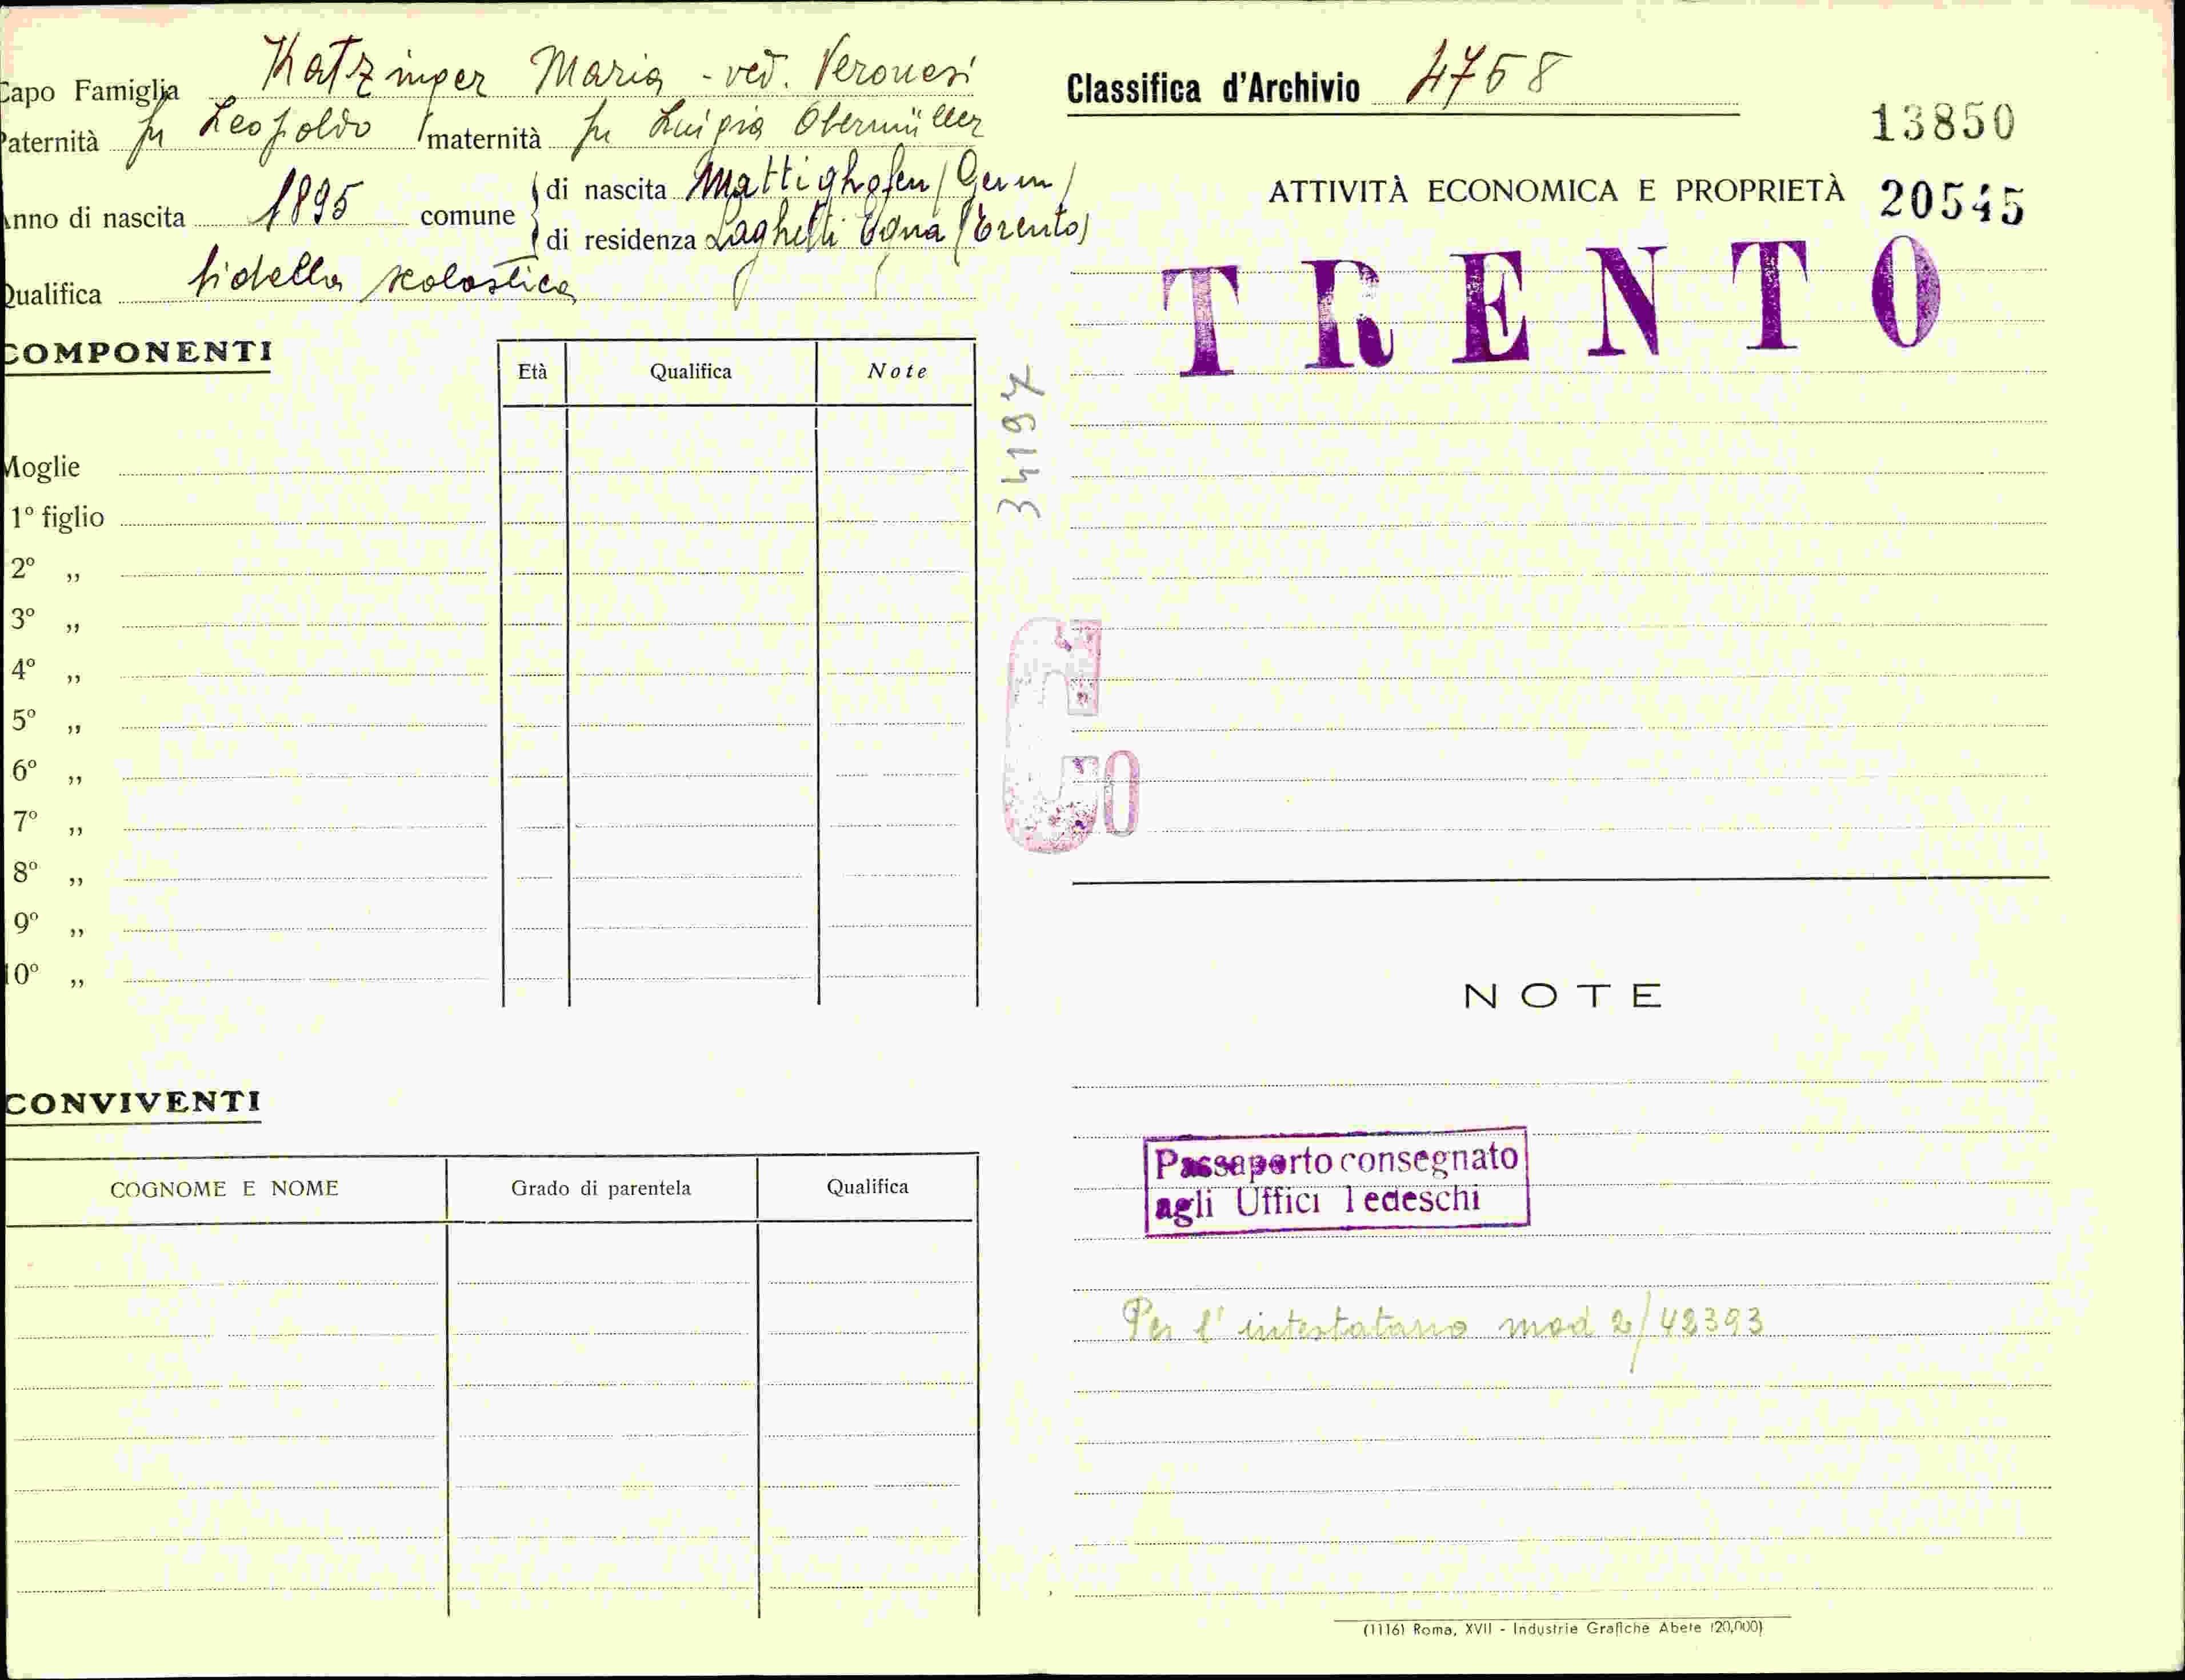 Capo Famiglia Katzinger Maria - ved. Veronesi
Paternità fu Leopoldo maternità fu Luigia Obermüller
Anno di nascita 1895 comune
di nascita Mattighofen (Germ)
di residenza Laghetti Egna (Trento)
Qualifica bidella scolastica
COMPONENTI
Età Qualifica Note
Moglie
1º figlio
2º „
3º „
4º „
5º „
6º „
7º „
8º „
9º „
10º „
CONVIVENTI
COGNOME E NOME Grado di parentela Qualifica
34197
Classifica d'Archivio 4758
13850
ATTIVITÀ ECONOMICA E PROPRIETÀ 20545
TRENTO
NOTE
Passaporto consegnato
agli Uffici Tedeschi
Per l'intestatario mod 2/42393
(1116) Roma, XVII - Industrie Grafiche Abete (20,000)